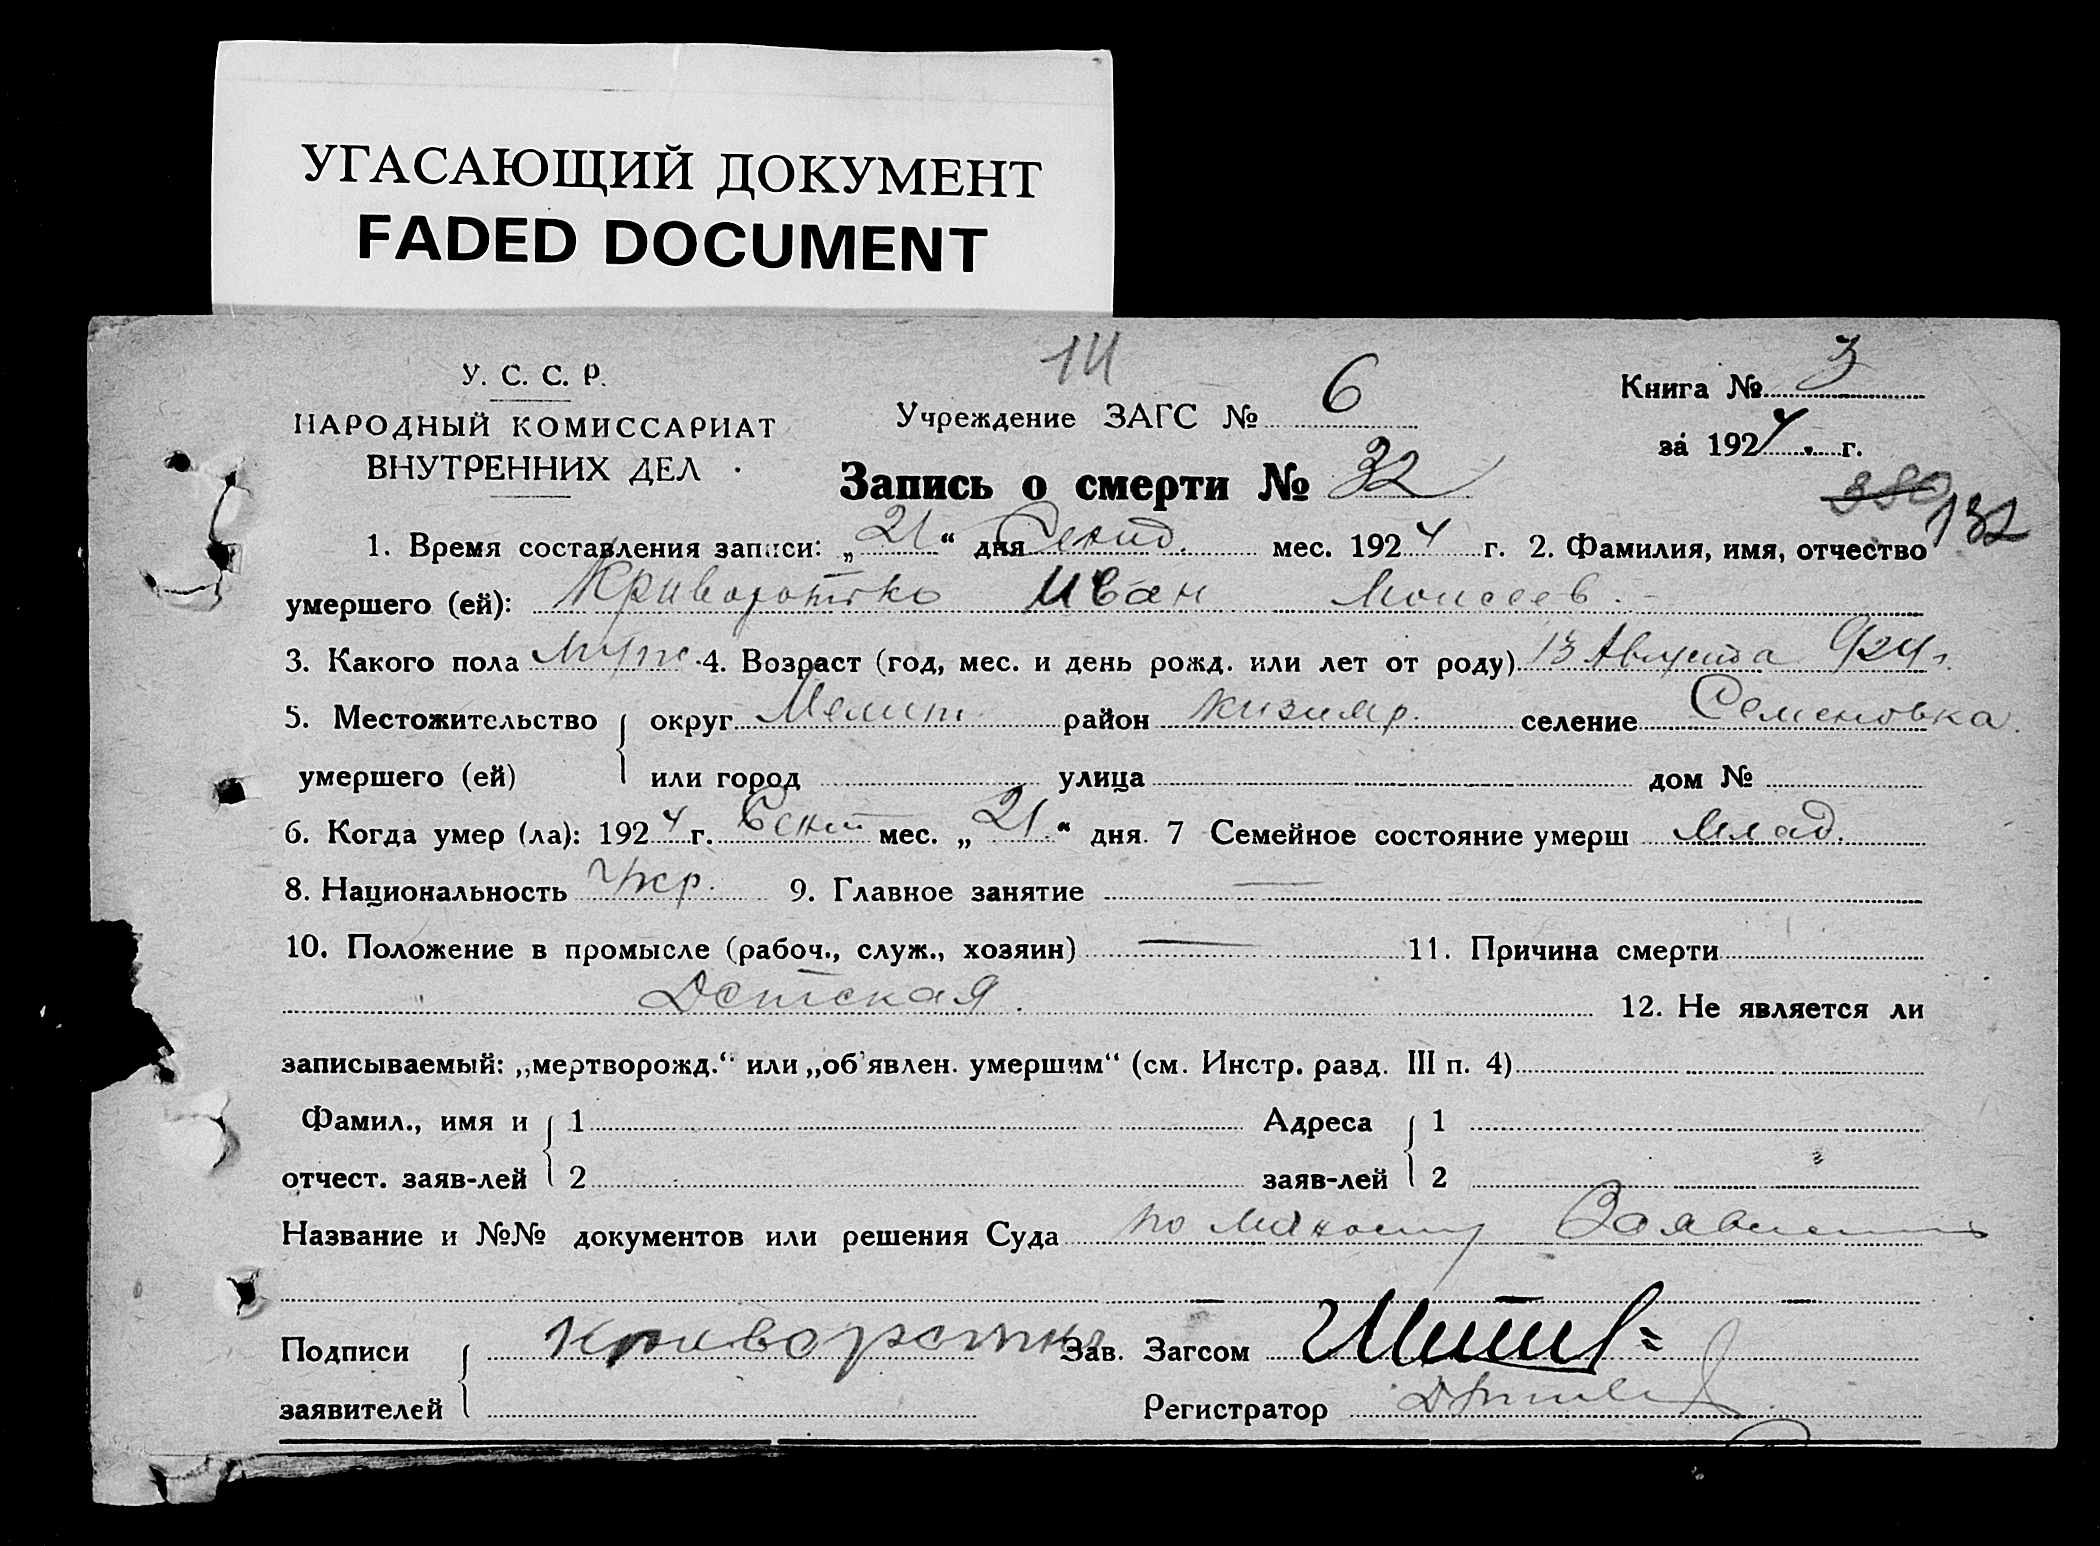 УГАСАЮЩИЙ ДОКУМЕНТ
FADED DOCUMENT
14
У. С. С. Р.
НАРОДНЫЙ КОМИССАРИАТ
ВНУТРЕННИХ ДЕЛ
Учреждение ЗАГС № 6
Книга № 3
за 1924 г.
Запись о смерти № 32
132
1. Время составления записи: „21“ дня Сент. мес. 1924 г. 2. Фамилия, имя, отчество
умершего (ей): Криворотько Иван Моисеев.
3. Какого пола муж. 4. Возраст (год, мес. и день рожд. или лет от роду) 13 Августа 924 г.
5. Местожительство округ Мелит. район Кизияр. селение Семеновка
умершего (ей) или город улица дом №
6. Когда умер (ла): 1924 г. Сент мес. „21“ дня. 7 Семейное состояние умерш Млад.
8. Национальность Укр. 9. Главное занятие —
10. Положение в промысле (рабоч., служ., хозяин) — 11. Причина смерти
Детская. 12. Не является ли
записываемый: „мертворожд.“ или „об'явлен. умершим“ (см. Инстр. разд. III п. 4)
Фамил., имя и 1 Адреса 1
отчест. заяв-лей 2 заяв-лей 2
Название и №№ документов или решения Суда по личному
Подписи Зав. Загсом
заявителей Регистратор